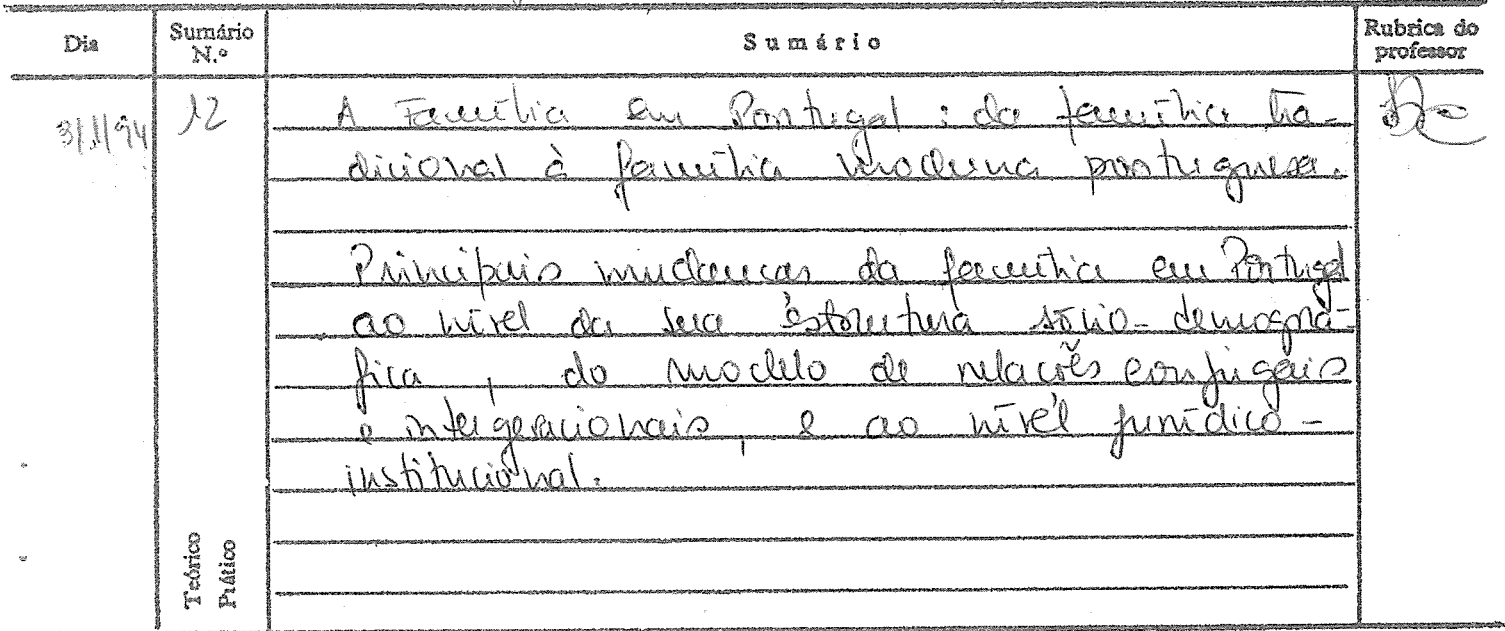 Dia Sumário N.º Sumário Rubrica do professor
12 A Família em Portugal : da família tra-
dicional à família moderna portuguesa.
Principais mudanças da família em Portugal
ao nível da sua estrutura sócio-demográ-
fica, do modelo de relações conjugais
e intergeracionais, e ao nível jurídico-
institucional.
Teórico
Prático